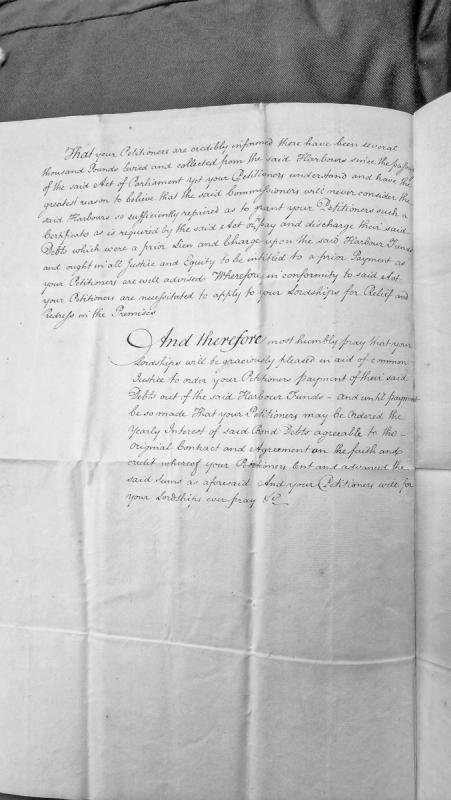 That your Petitioners are credibly informed there have been several
thousand Pounds levied and collected from the said Harbours since the passing
of the said Act of Parliament yet your Petitioners understand and have the
greatest reason to believe that the said Commissioners will never consider the
said Harbours so sufficiently repaired as to grant your Petitioners such a
Certificate as is required by the said Act or pay and discharge their said
Debts which were a prior Lien and Charge upon the said Harbour Funds
and ought in all Justice and Equity to be intitled to a prior Payment as
your Petitioners are well advised Wherefore in conformity to said Act
your Petitioners are necessitated to apply to your Lordships for Relief and
Redress in the Premises
And therefore most humbly pray that your
Lordships will be graciously pleased in aid of common
Justice to order your Petitioners payment of their said
Debts out of the said Harbour Funds – and until payment
be so made That your Petitioners may be Ordered the
Yearly Interest of said Bond Debts agreeable to the –
original Contract and Agreement on the faith and
credit whereof your Petitioners lent and advanced the
said sums as aforesaid And your Petitioners will for
your Lordships ever pray &c